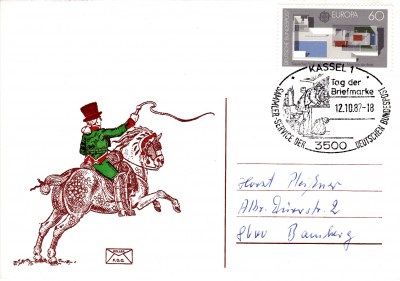 EUROPA 60
DEUTSCHE BUNDESPOST
KASSEL 1
Tag der
Briefmarke
12.10.87-18
SAMMLER-SERVICE DER DEUTSCHEN BUNDESPOST
3500
Horst
Albr. Dürerstr. 2
8600 Bamberg